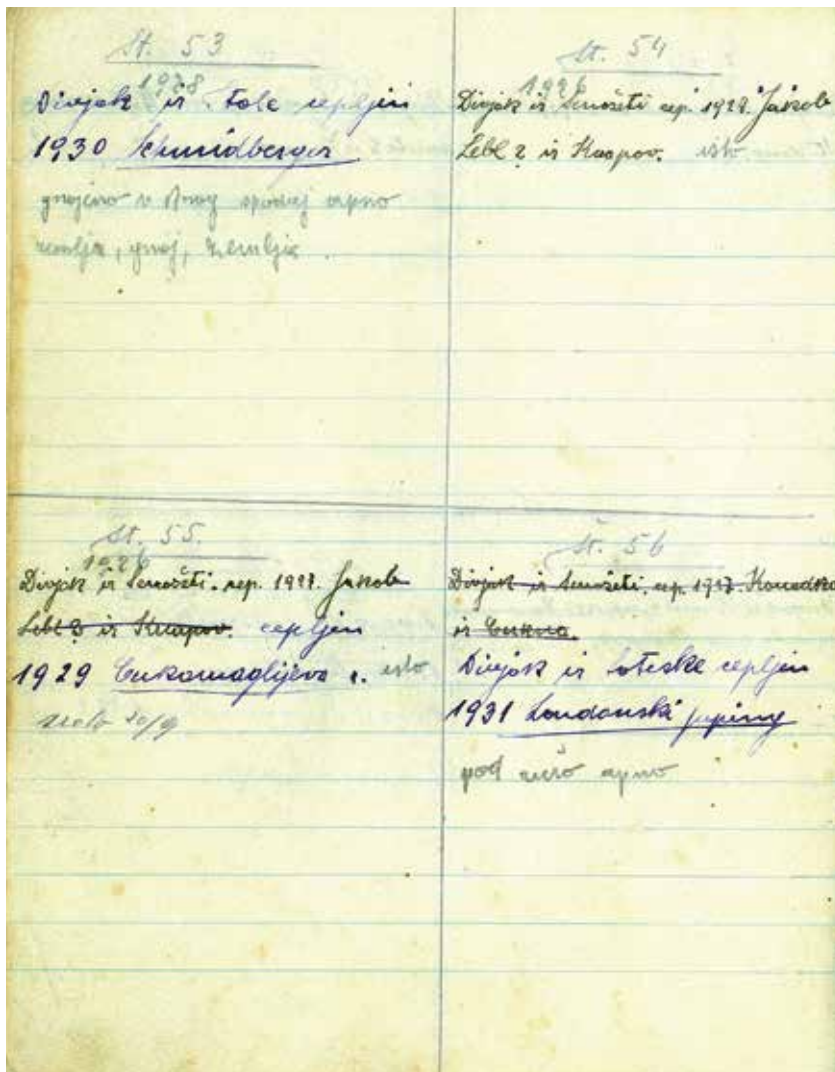 Št. 53
1928
Divjak iz Tole cepljen
1930 Schmidberger
gnojeno v spodaj apno
zemlja, gnoj, zemlja.
Št. 54
1926
Divjak iz Senožeti cep. 1927. Jakob
Lebl ? iz Knapov. isto
Št. 55.
1926
Divjak iz Senožeti. cep. 1927. Jakob
Lebl ? iz Knapov. cepljen
1929 isto
20/9
Št. 56
Divjak iz Senožeti. cep. 1927.
iz
Divjak iz Loteske cepljen
1931 Londonski peping
pod apno